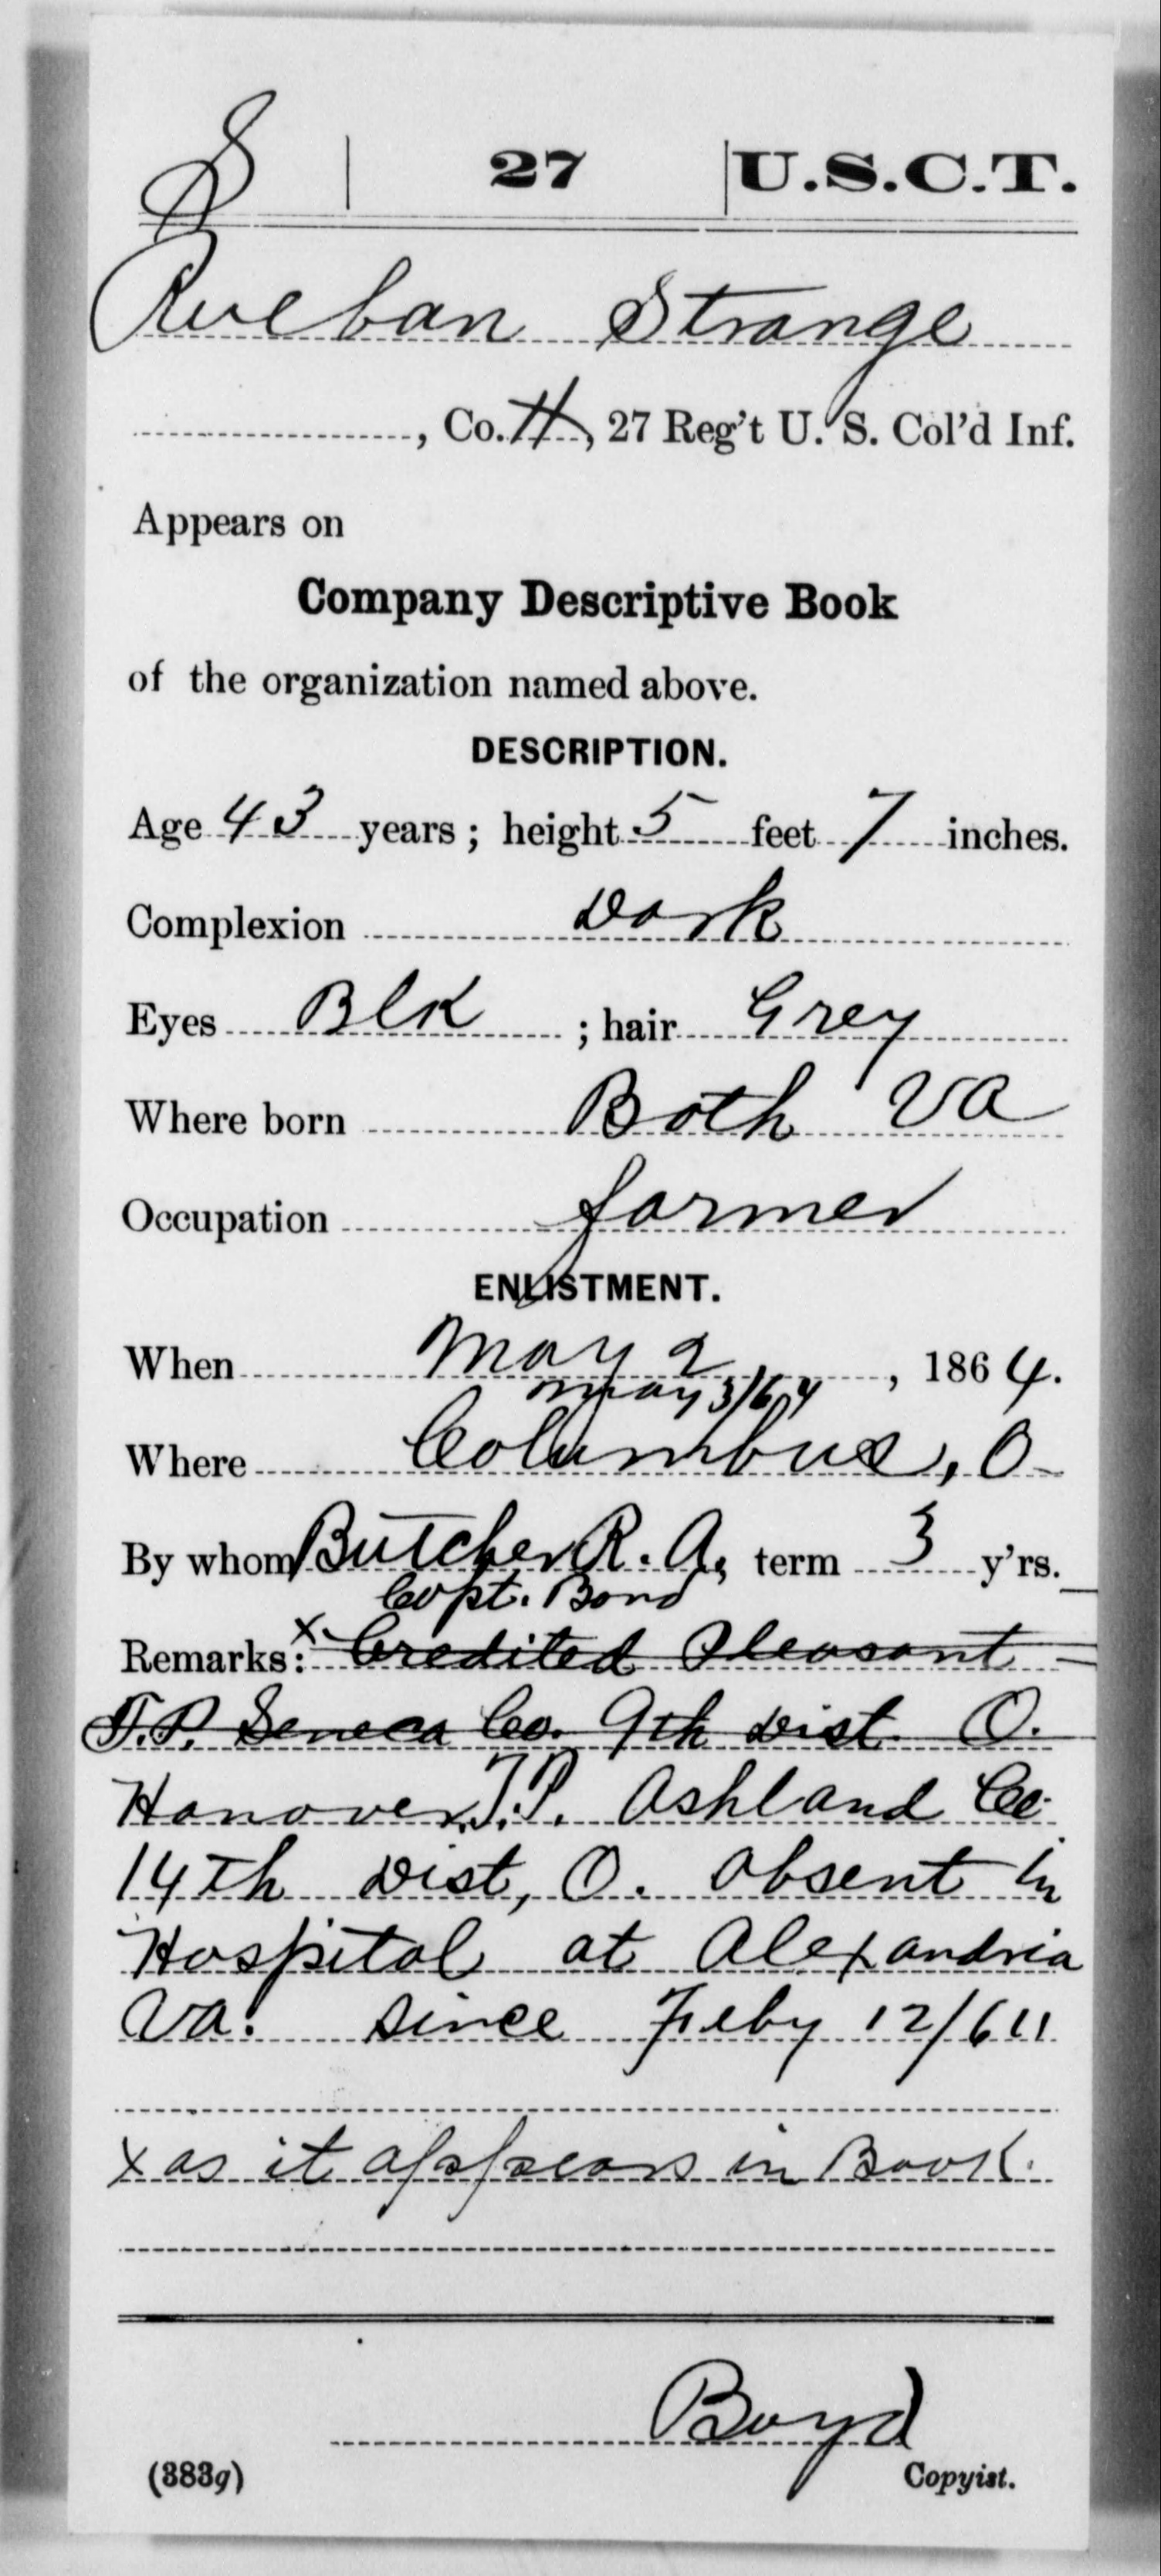 S | 27 | U.S.C.T.
Rueban Strange
, Co. H, 27 Reg't U. S. Col'd Inf.
Appears on
Company Descriptive Book
of the organization named above.
DESCRIPTION.
Age 43 years; height 5 feet 7 inches.
Complexion Dark
Eyes Blk ; hair Grey
Where born Both Va
Occupation farmer
ENLISTMENT.
When May 2, 1864.
May 3/64
Where Columbus, O
By whom Butcher R. A., term 3 y'rs.
Capt. Bond
Remarks: x Credited Pleasant
T.P. Seneca Co. 9th Dist. O.
Hanover T.P. Ashland Co
14th Dist, O. Absent in
Hospital at Alexandria
Va. since Feby 12/64
x as it appears in Book.
Boyd
(383g) Copyist.